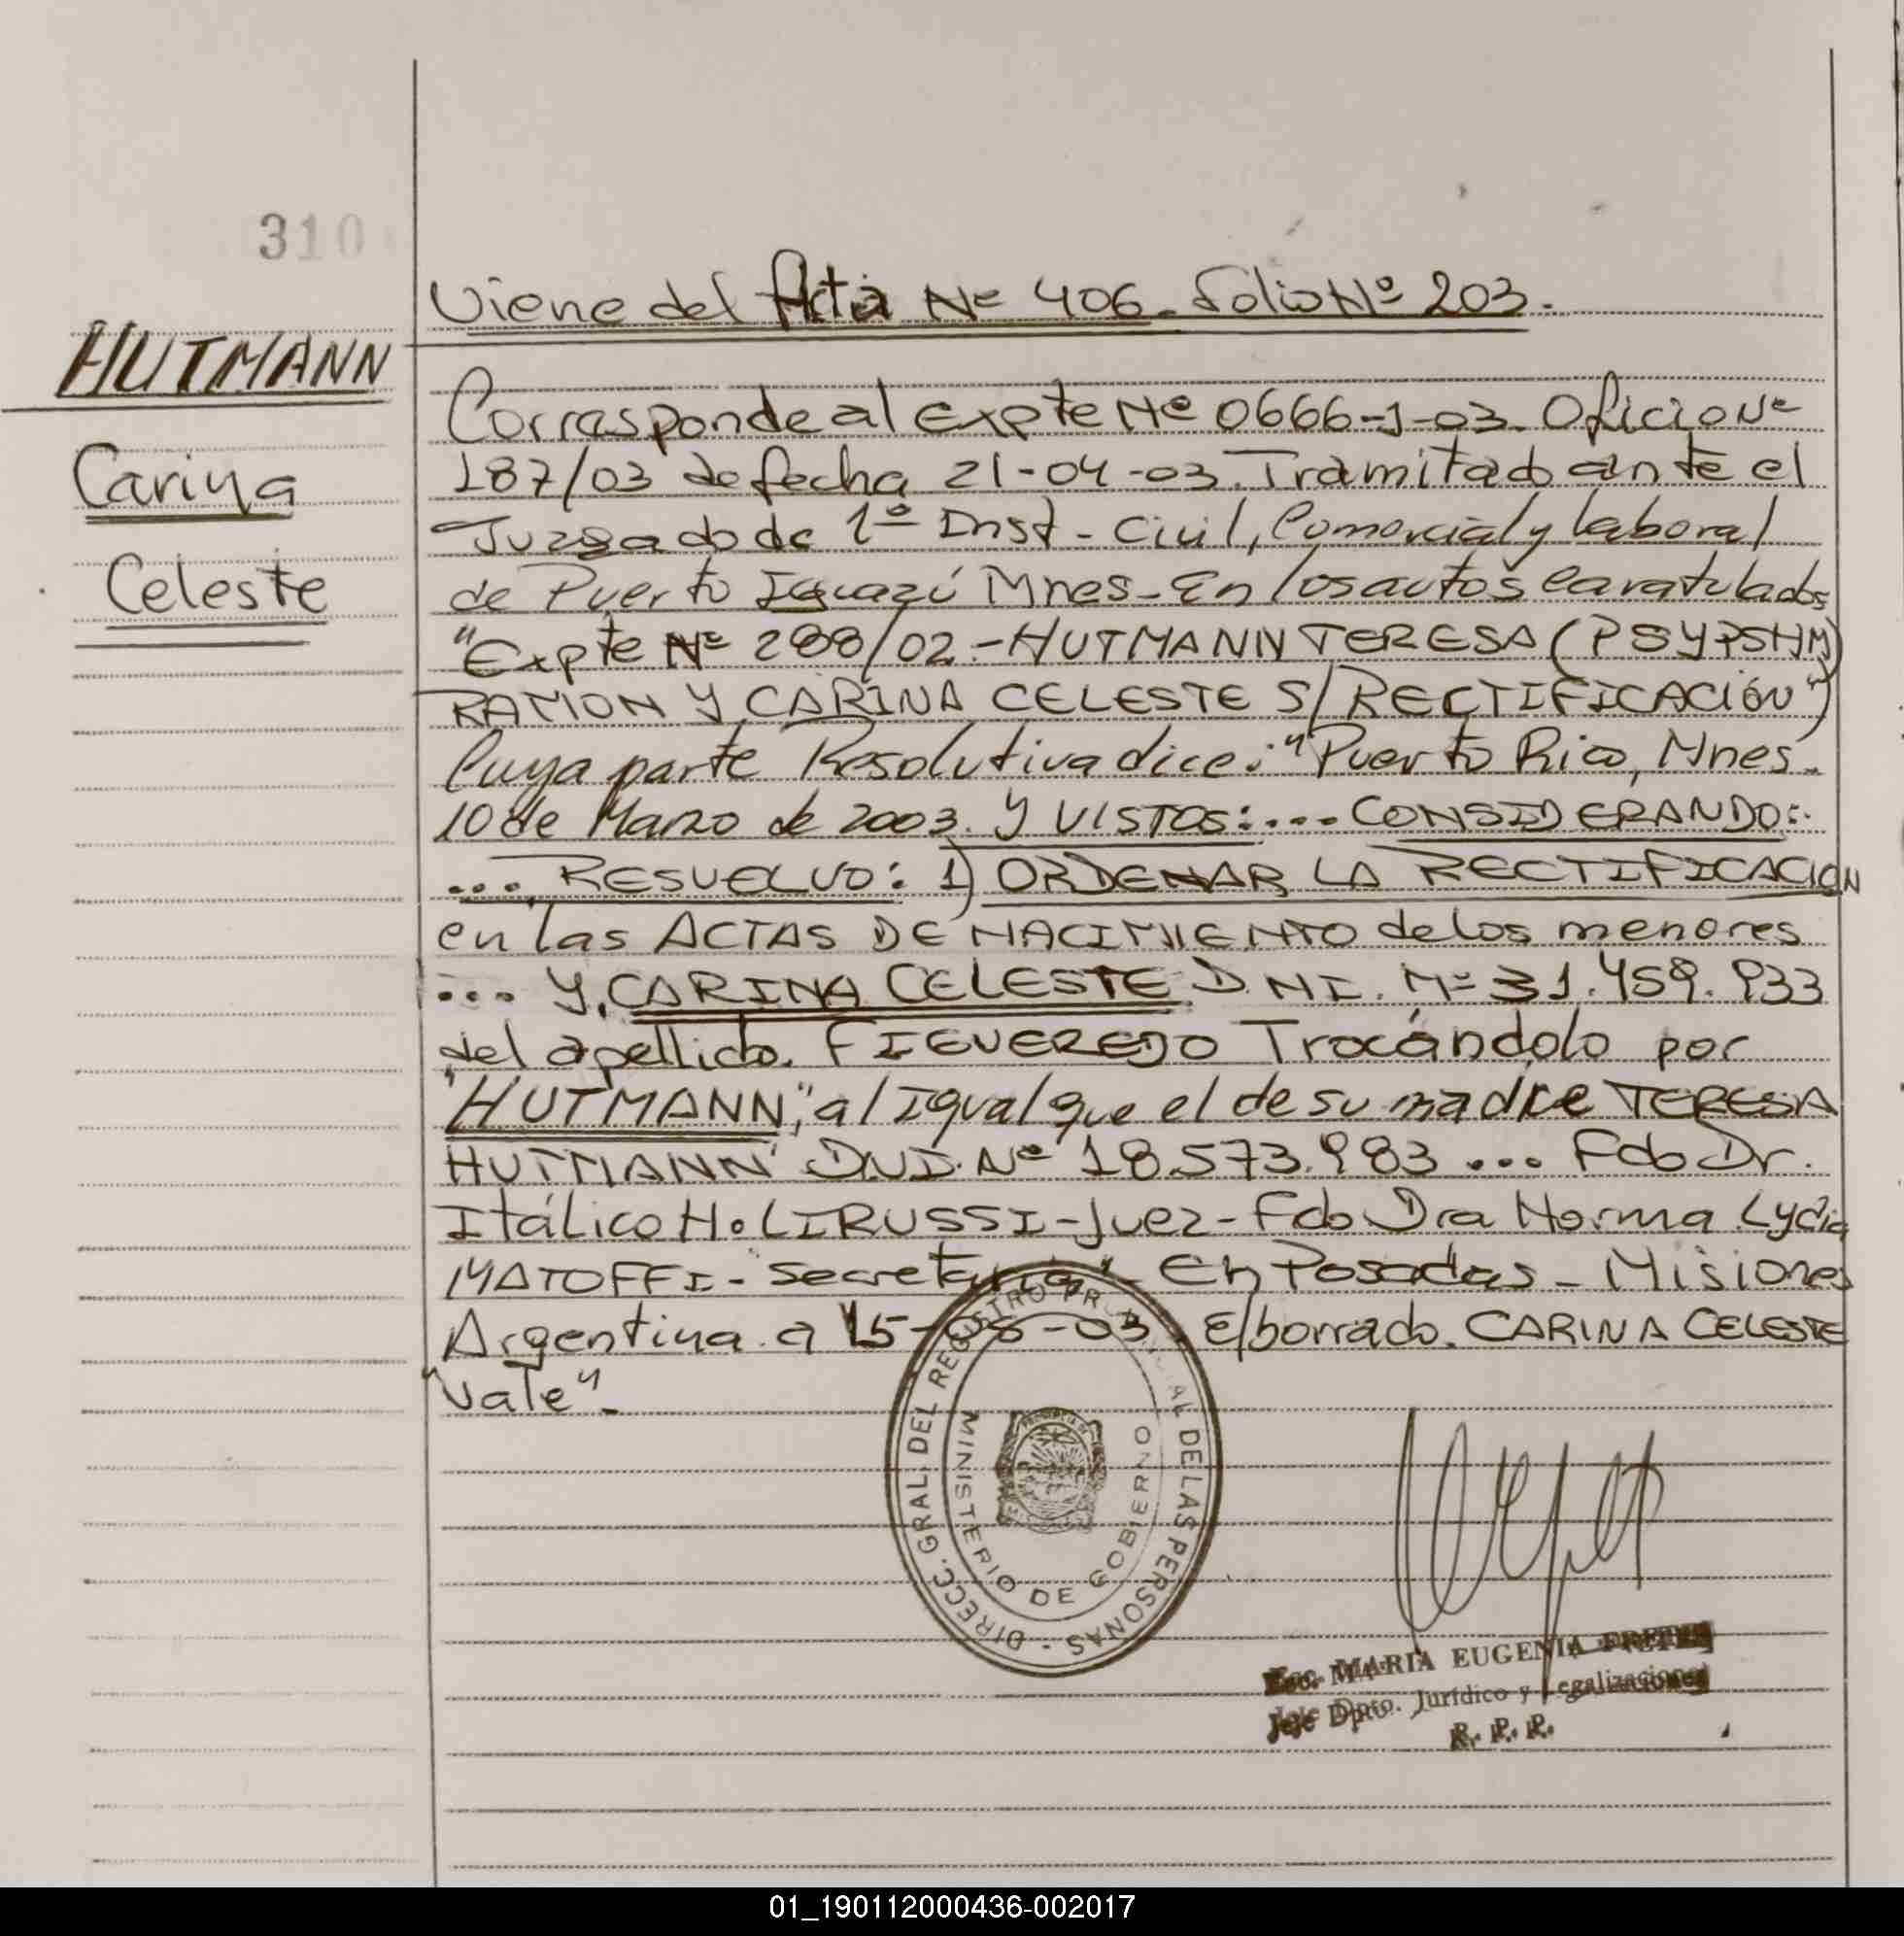 310
Viene del Acta Nº 406. Folio Nº 203.-
HUTMANN
Carina
Celeste
Corresponde al Expte Nº 0666-1-03. Oficio Nº
187/03 de fecha 21-04-03. Tramitado ante el
Juzgado de 1º Inst - Civil, Comercial y laboral
de Puerto Iguazú Mnes - En los autos caratulados
"Expte Nº 288/02.- HUTMANN TERESA (PSYPSHM)
RAMON Y CARINA CELESTE S/RECTIFICACIÓN")
Cuya parte Resolutiva dice: "Puerto Rico, Mnes.
10 de Marzo de 2003. Y VISTOS:... CONSIDERANDO:.
... RESUELVO: 1) ORDENAR LA RECTIFICACION
en las ACTAS DE NACIMIENTO de los menores
... Y, CARINA CELESTE D.NI. Nº 31.459.933
del apellido. FIGUEREDO Trocándolo por
"HUTMANN", al Igual que el de su madre TERESA
HUTMANN D.N.I. Nº 18.573.983 ... Fdo Dr.
Itálico H. LIRUSSI - Juez - Fdo Dra Norma Lydia
MATOFFI - Secretaria" - En Posadas - Misiones
Argentina a 15- -03. E/borrado. CARINA CELESTE
"Vale".-
DIRECC. GRAL. DEL REGISTRO PROVINCIAL DE LAS PERSONAS -
MINISTERIO DE GOBIERNO
Esc. MARIA EUGENIA
Jefe Dpto. Jurídico y Legalizaciones
R. P. P.
01_190112000436-002017